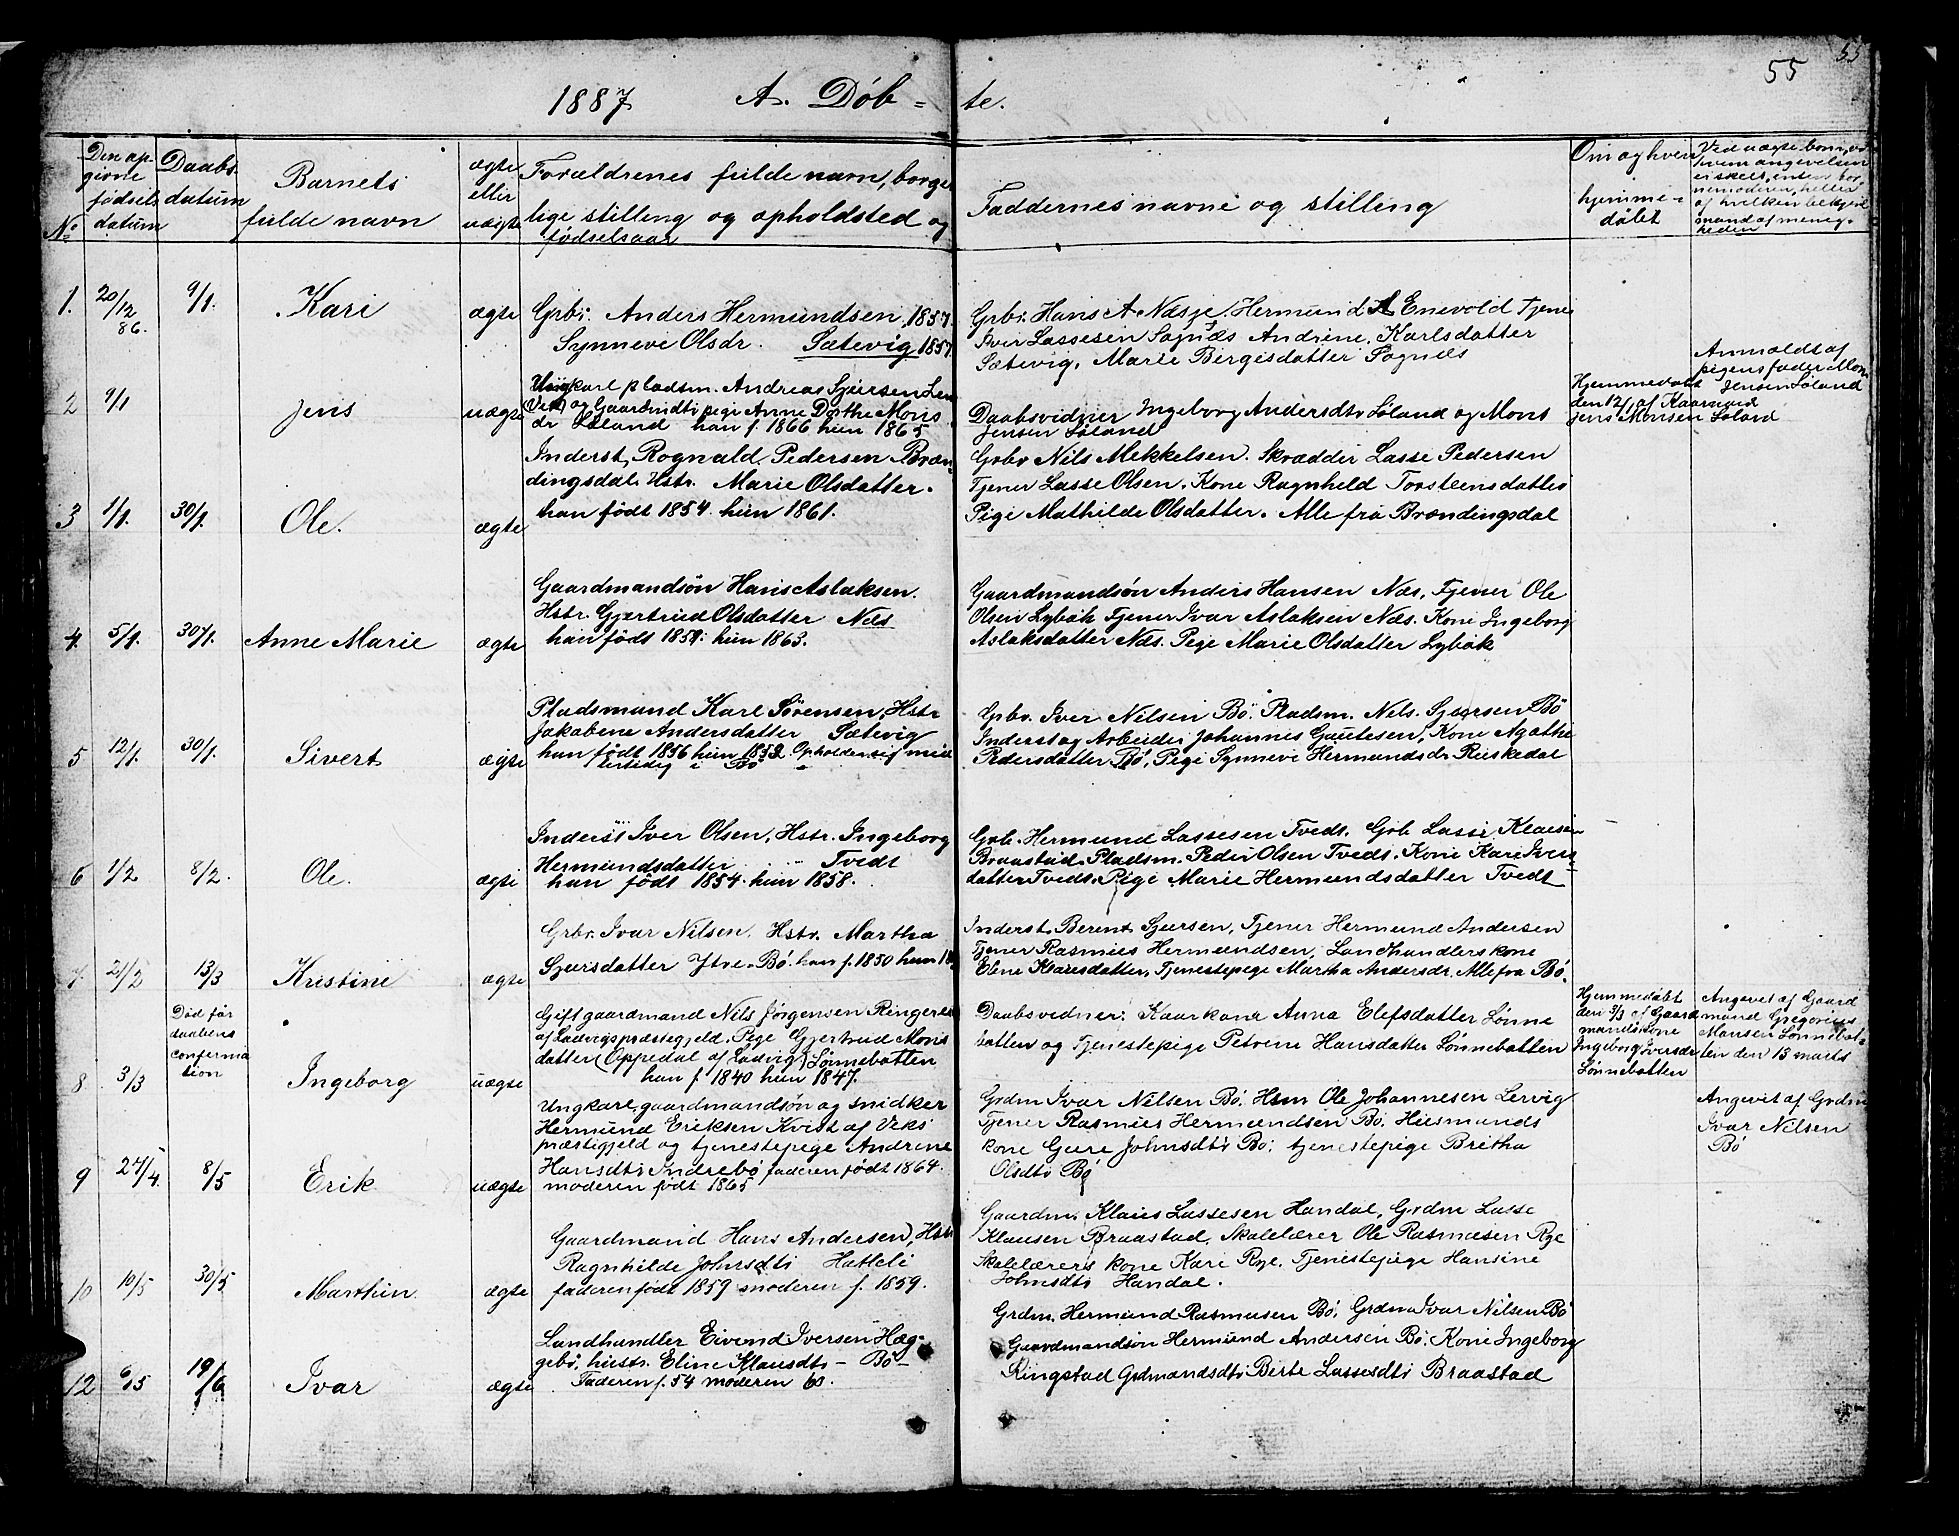 55
55
1887 A. Döb = te.
No
Den op-
givne
fødsels
datum
Daabs-
datum
Barnets
fulde navn
ægte
eller
uægte
Forældrenes fulde navn, borger
lige stilling og opholdsted og
fødselsaar
Faddernes navne og stilling
Om og hven
hjemme=
døbt
1. 20/12 86. 9/1. Kari ægte
Grbr. Anders Hermundsen 1857.
Synneve Olsdr. Sætevig 1857
Grbr. Hans A Næsje, Hermund A Enevold Tjener
Iver Lassesen Sognæs Andrine Karlsdatter
Sætevig. Marie Bergesdatter Sognæs
2 9/1 Jens uægte
Ungkarl pladsm. Andreas Sjursen
og Gaardmdtr pige Anne Dorthe Mons
dr Søland han f. 1866 hun 1865
Daabsvidner Ingeborg Andersdtr Søland og Mons
Jensen Søland
Hjemmedøbt
den 12/1 af Kaarmand
Jens Monsen Søland
Anmeldt af
pigens fader Mons
Jensen Søland
3 1/1. 30/1. Ole. ægte
Inderst, Rognald Pedersen Bræn-
dingsdal. Hstr. Marie Olsdatter.
han født 1854. hun 1861.
Grbr Nils Mekkelsen. Skrædder Lasse Pedersen
Tjener Lasse Olsen. Kone Ragnheld Torsteensdatter
Pige Mathilde Olsdatter. Alle fra Brændingsdal
4. 5/1. 30/1. Anne Marie ægte
Gaardmandsøn Hans Aslaksen.
Hstr. Gjertrud Olsdatter Næs
han født 1859: hun 1863.
Gaardmandsøn Anders Hansen Næs, Tjener Ole
Olsen Lybøk Tjener Ivar Aslaksen Næs. Kone Ingeborg
Aslaksdatter Næs. Pige Marie Olsdatter Lybøk
5 12/1. 30/1. Sivert ægte
Pladsmand Karl Sørensen, Hstr
Jakobene Andersdatter Sætevig
han født 1856 hun 1852 Opholder sig mid
lertidig i Bø
Grbr. Iver Nilsen Bø. Pladsm. Nels. Sjursen Bø
Inderst og Arbeider Johannes Gautesen, Kone Agathe
Pedersdatter Bø, Pige Synneve Hermandsdr Ruskedal
6 1/2 8/2. Ole. ægte
Inderst Iver Olsen, Hstr. Ingeborg
Hermundsdatter Tvedt
han født 1854. hun 1858.
Grb. Hermund Lassesen Tvedt. Grb Lasse Klausen
Braastad. Pladsm. Peder Olsen Tvedt. Kone Kari Ivers-
datter Tvedt. Pige Marie Hermundsdatter Tvedt
7 21/2 13/3 Kristine ægte
Grbr. Ivar Nilsen. Hstr. Martha
Sjursdatter Ytre-Bø. han f. 1850 hun
Inderst Berent Sjursen, Tjener Hermund Andersen
Tjener Rasmus Hermundsen, Landhandlers kone
Eline Klausdatter, Tjenestepige Martha Andersdr. Alle fra Bø.
8 3/3
Død før
daabens
conferma
tion
Ingeborg uægte
Gift gaardmand Nils Jørgensen Ringeres
af Ladvigs præstegjeld. Pige Gjertrud Mons
datter (Oppedal af Ladvig) Sønnebotten
han f. 1840 hun 1847.
Daabsvidner: Kaarkone Anna Elefsdatter Sønne
botten og Tjenestepige Petrine Hansdatter Sønnebotten
Hjemmedøbt
den 3/3 af Gaard
mands kone
Ingeborg Iversdr
Sønnebotten
Angevet af Gaard
mand Gregorius
Mansen Sønnebot-
ten den 13 marts
9 24/4. 8/5 Erik uægte
Ungkarl, gaardmandsøn og snidker
Hermund Eriksen Kvist af Viks
præstigjeld og tjenestepige Andrine
Hansdtr Indrebø faderen født 1864.
moderen født 1865
Grdm Ivar Nelsen Bø. Hsm Ole Johannesen Lervig
Tjener Rasmus Hermundsen Bø. Husmands
kone Gure Johnsdtr Bø. tjenestepige Britha
Olsdtr Bø
Angevit af Grdm
Ivar Nilsen
Bø
10 10/5 30/5 Marthin. ægte
Gaardmand Hans Andersen, Hstr
Ragnhilde Johnsdtr Hatleli
faderen født 1859 moderen f. 1859.
Gaardm. Klaus Lassesen Handal, Grdm Lasse
Klausen Braastad, Skolelærer Ole Rasmusen Rye
Skolelærers kone Kari Rye. Tjenestepige Hansine
Johnsdtr Handal.
12 6/5 19/6 Ivar ægte
Landhandler Eivend Iversen Hæg-
gebø, hustr. Eline Klausdtr - Bø -
Faderen f. 54 moderen 60.
Grdm. Hermund Rasmusen Bø, Grdm Ivar Nilsen Bø
Gaardmandsøn Hermund Andersen Bø. Kone Ingeborg
Ringstad Grdmandsdtr Berte Lassesdtr Braastad